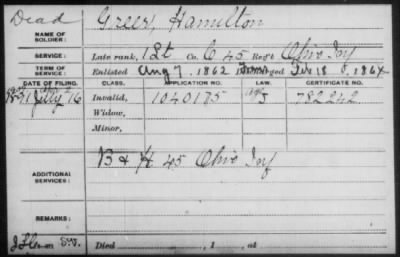 Dead
NAME OF SOLDIER: Greer, Hamilton
SERVICE: Late rank, 1 Lt Co. G 45 Reg't Ohio Inf
TERM OF SERVICE: Enlisted Aug 7, 1862 Discharged Feb 18, 1864
DATE OF FILING. CLASS. APPLICATION NO. LAW. CERTIFICATE NO.
1891 July 16 Invalid, 1040175 J 782242
Widow,
Minor,
ADDITIONAL SERVICES: B & H 45 Ohio Inf
REMARKS:
Died , 1 , at